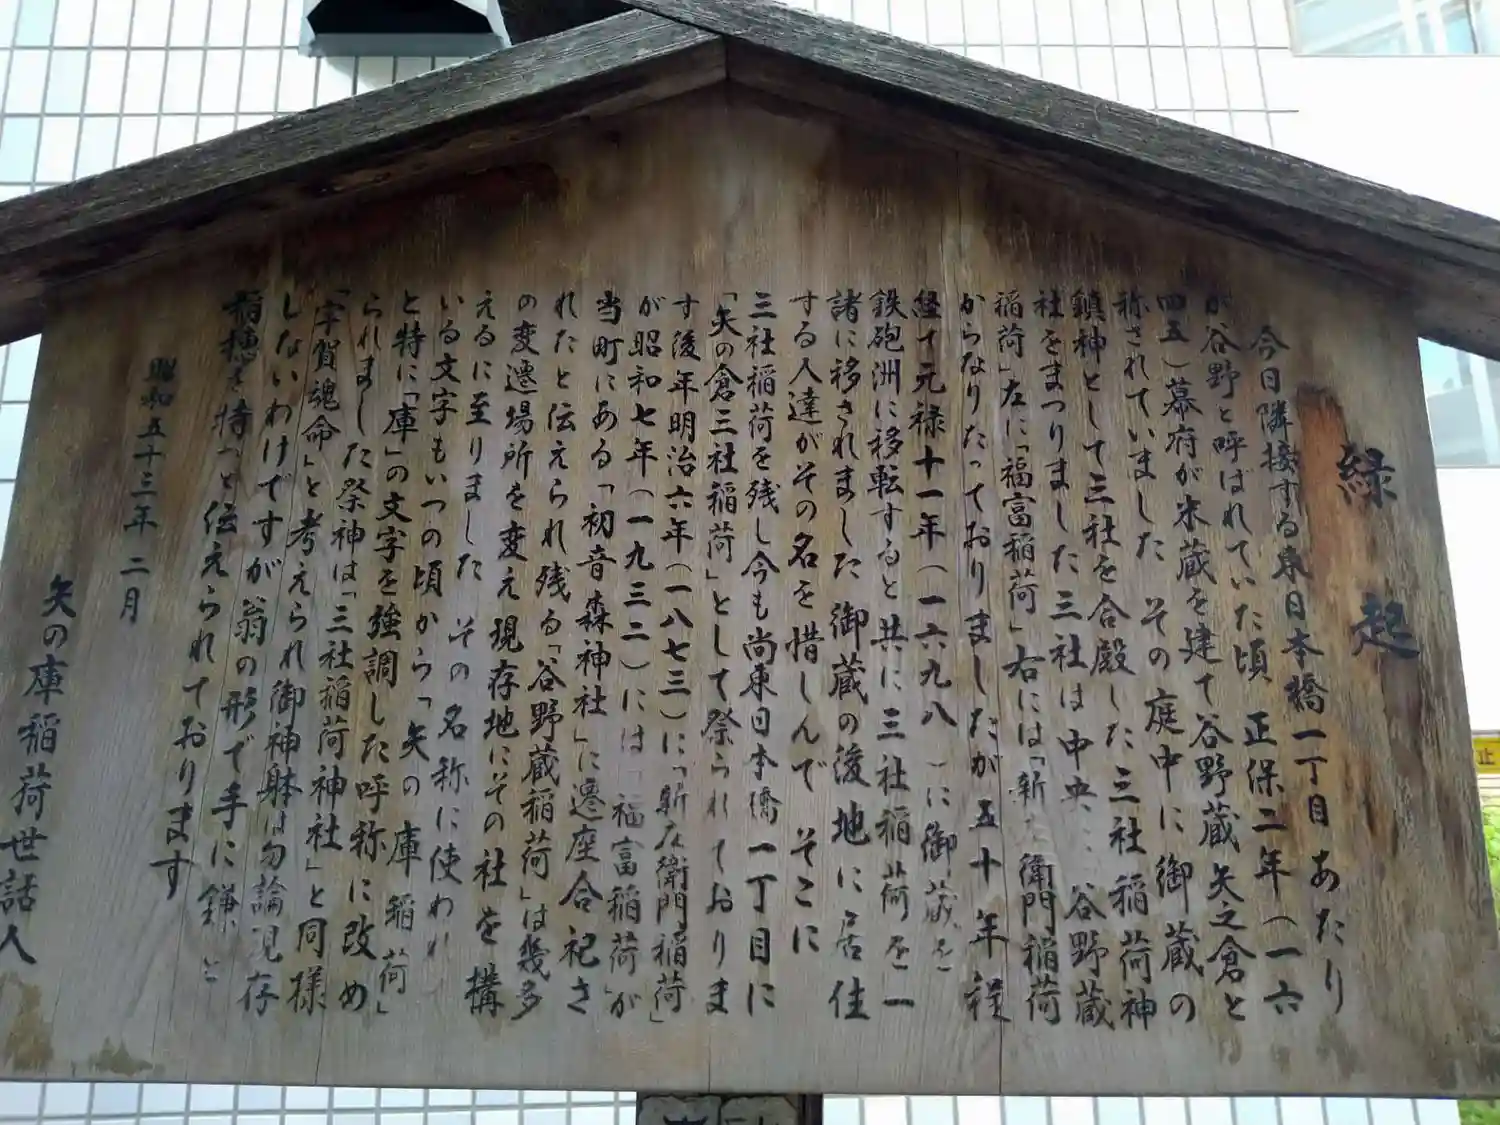 縁起
今日隣接する東日本橋一丁目あたり
が谷野と呼ばれていた頃 正保二年(一六
四五)幕府が米蔵を建て谷野蔵矢之倉と
称されていました その庭中に御蔵の
鎮神として三社を合殿した三社稲荷神
社をまつりました三社は中央に 谷野蔵
稲荷」左に「福富稲荷」右には「新左衛門稲荷
からなりたっておりましたが五十年程
経て元禄十一年(一六九八)に御蔵を
鉄砲洲に移転すると共に三社稲荷を一
諸に移されました御蔵の後地に居住
する人達がその名を惜しんで そこに
三社稲荷を残し今も尚東日本橋一丁目に
「矢の倉三社稲荷」として祭られておりま
す後年明治六年(一八七三)に「新左衛門稲荷」
が昭和七年(一九三二)には「福富稲荷」が
当町にある「初音森神社」に遷座合祀さ
れたと伝えられ残る「谷野蔵稲荷」は幾多
の変遷場所を変え現存地にその社を構
えるに至りました その名称に使われ
いる文字もいつの頃から「矢の庫稲荷」
と特に「庫」の文字を強調した呼称に改め
られました祭神は「三社稲荷神社」と同様
「宇賀魂命」と考えられ御神躰は勿論現存
しないわけですが翁の形で手に鎌と
稲穂を持つと伝えられております
昭和五十三年 二月
矢の庫稲荷世話人